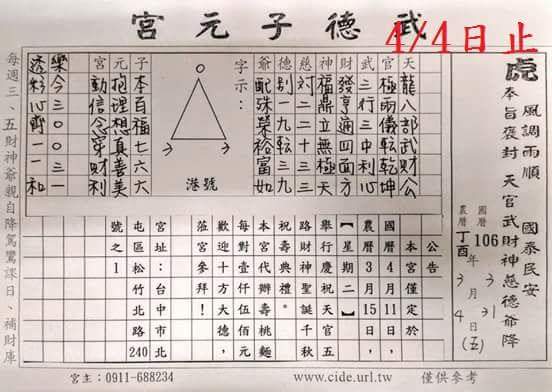 武德子元宮
4/4日止
虎
風調雨順 國泰民安
奉旨褒封 天官武財神慈德爺降
國曆 106年3月31日(五)
農曆 丁酉 3 4
天龍八部武財公
官極兩儀転乾坤
武三行三中利心
財發亨通四面方
神福鼎立無極天
慈対二二十三三
德別一九転三九
爺配殊榮裕富如
字示:
港號
子本百福七六六
元抱理想真善美
宮動信念穿財利
樂今三○○三一
透彩心一一和
公告
本宮僅定於
國曆4月11日,
農曆3月15日,
【星期二】
舉行慶祝天官五
路財神聖誕千秋
祝壽典禮。
本宮代辦壽桃麵
每對壹仟伍佰元
歡迎十方大德,
蒞宮參拜!
宮址:台中市北
屯區松竹北路240
號之1
每週三、五財神爺親自降駕濟課日、補財庫
宮主:0911-688234
www.cide.url.tw
僅供參考